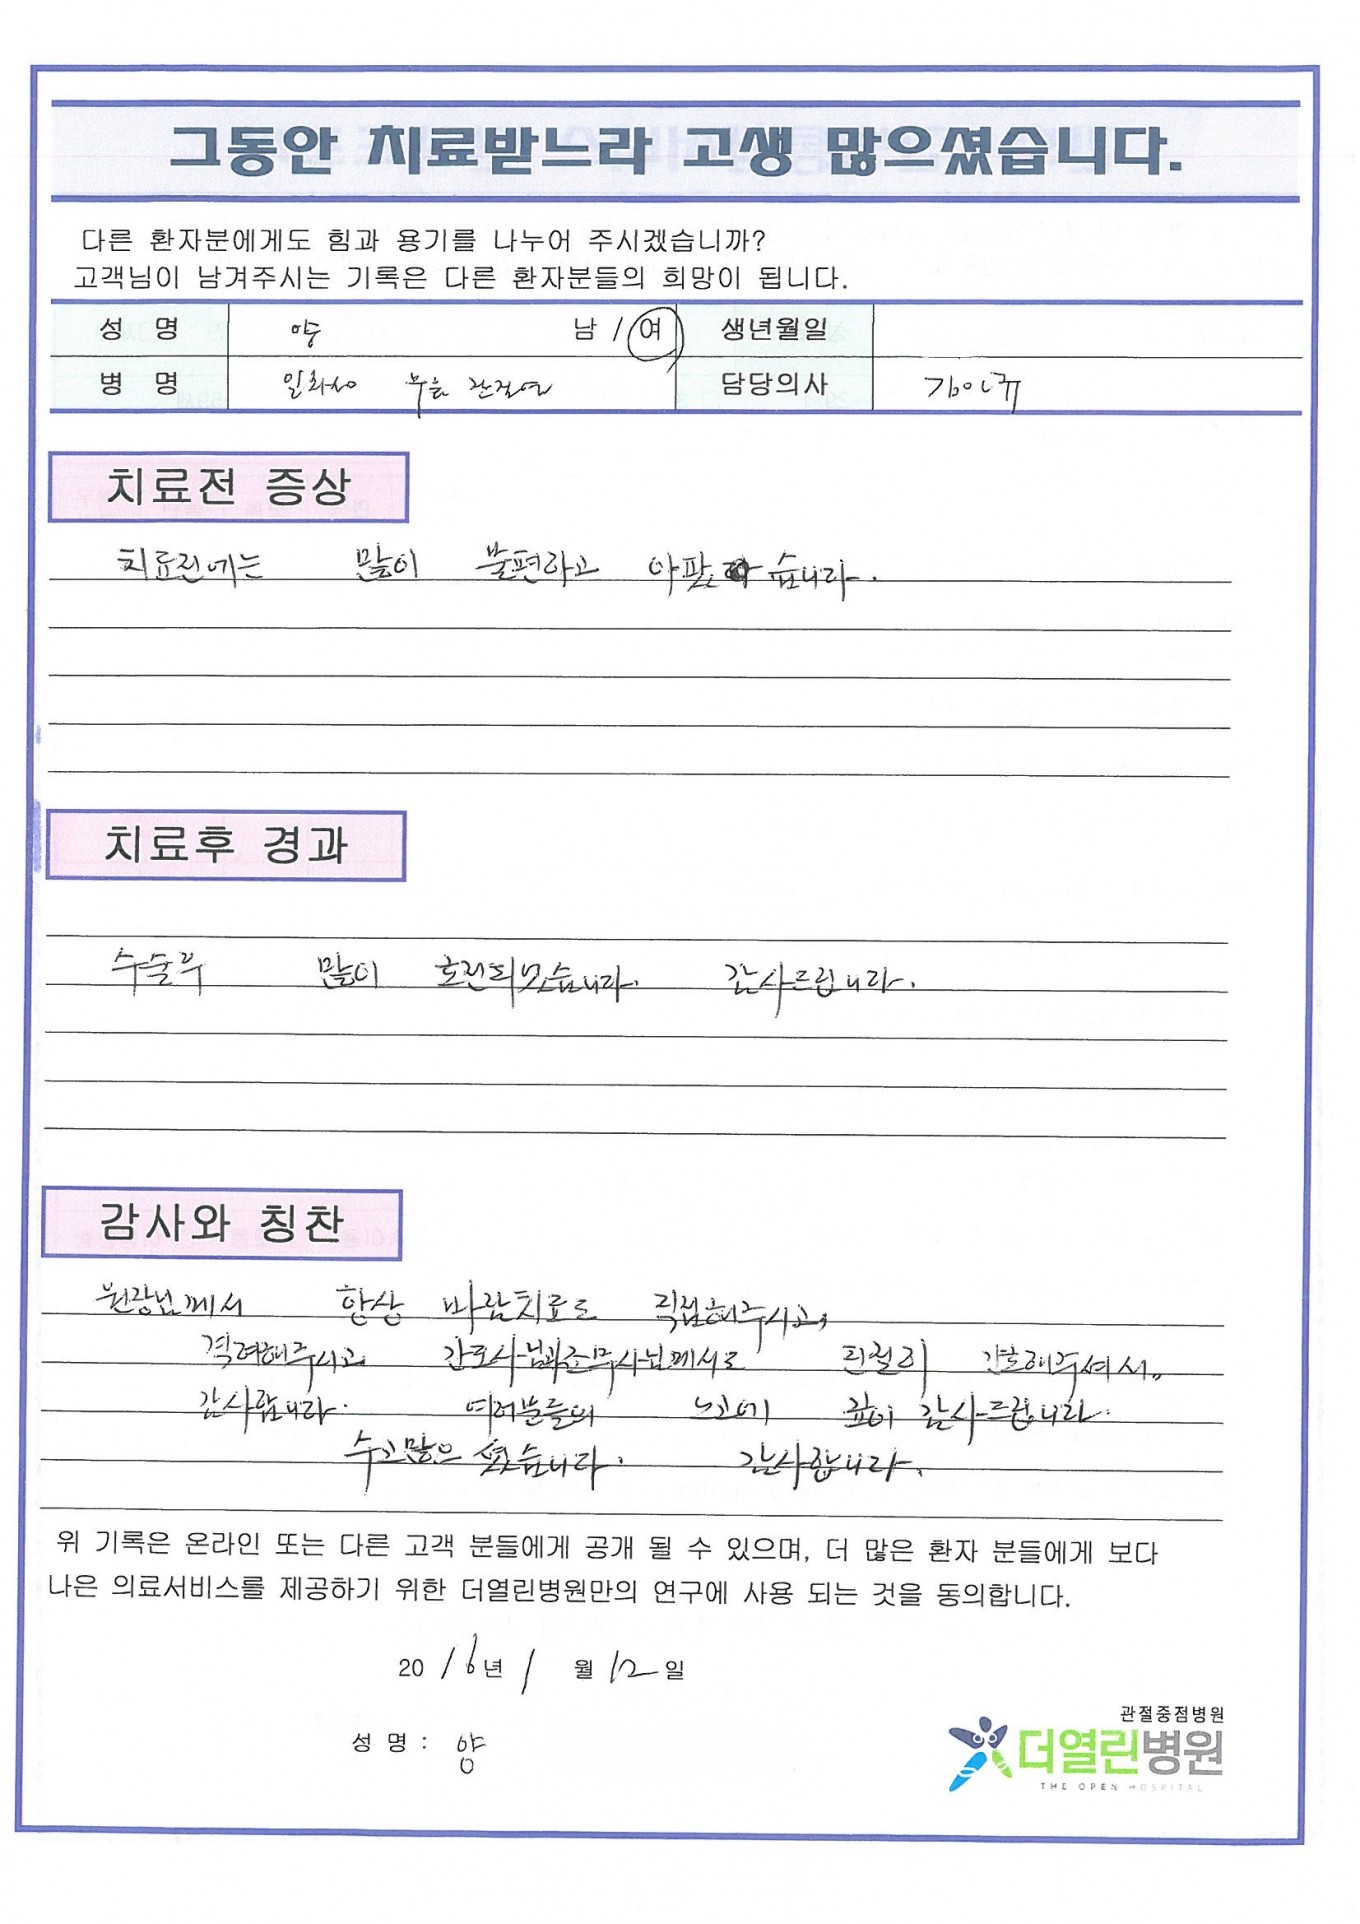 그동안 치료받느라 고생 많으셨습니다.
다른 환자분에게도 힘과 용기를 나누어 주시겠습니까?
고객님이 남겨주시는 기록은 다른 환자분들의 희망이 됩니다.
성 명 양 남 / 여 생년월일
병 명 무릎 관절염 담당의사
치료전 증상
치료전에는 많이 불편하고 아팠습니다.
치료후 경과
수술후 많이 호전되었습니다. 감사드립니다.
감사와 칭찬
원장님께서 항상 치료도 직접해주시고,
격려해주시고 간호사님과 께서도 간호해주셔서..
감사합니다. 여러분들의 노고에 깊이 감사드립니다.
수고많으셨습니다. 감사합니다.
위 기록은 온라인 또는 다른 고객 분들에게 공개 될 수 있으며, 더 많은 환자 분들에게 보다
나은 의료서비스를 제공하기 위한 더열린병원만의 연구에 사용 되는 것을 동의합니다.
2016년 1월 12일
성 명 : 양
관절중점병원
더열린병원
THE OPEN HOSPITAL